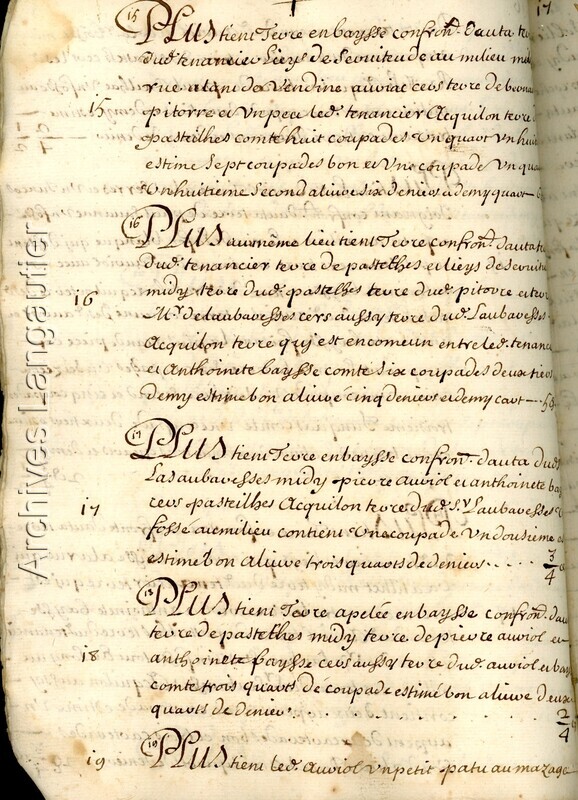 17
15 PLUS tient Terre en baysse confron.t d'auta ter
dud. tenancier lieys de servitude au milieu mi
rue alani de Vendine auriac cers terre de
15 pitorre et Un peu led. tenancier Acquilon terre d
pasteilhes comté huit coupades Un quart Un hui
estime sept coupades bon et Une coupade Un qua
Un huitième second aliuré six deniers et demy quart
16 PLUS au même lieu tient Terre confron.t d'auta te
dud. tenancier terre de pastelhes et lieys de servit
16 midy terre dud. pastelhes terre dud. pitorre et terr
M.r de laubavesses cers aussy terre dud. Laubavesses
Acquilon terre qu'est en comeun entre led. tenanc
et Anthoinete baysse comte six coupades deux tiers
demy estimé bon aliuré cinq deniers et demy cart
17 PLUS tient Terre en baysse confron.t d'auta dud.
Lasaubavesses midy pierre auriol et anthoinete ba
17 cers pasteilhes Acquilon terre dud. S.r Laubavesses
fosse au milieu contient Une coupade Un dousieme
estimé bon aliure trois quarts de deniers 3/4
18 PLUS tient Terre apelée en baysse confron.t d'au
terre de pastelhes midy terre de pierre auriol et
18 anthoinete baysse cers aussy terre dud. auriol et bay
comte trois quarts de coupade estimé bon aliure deux
quarts de denier 2/4
19 19 PLUS tient led. auriol Un petit patu au mazage
Archives Langautier